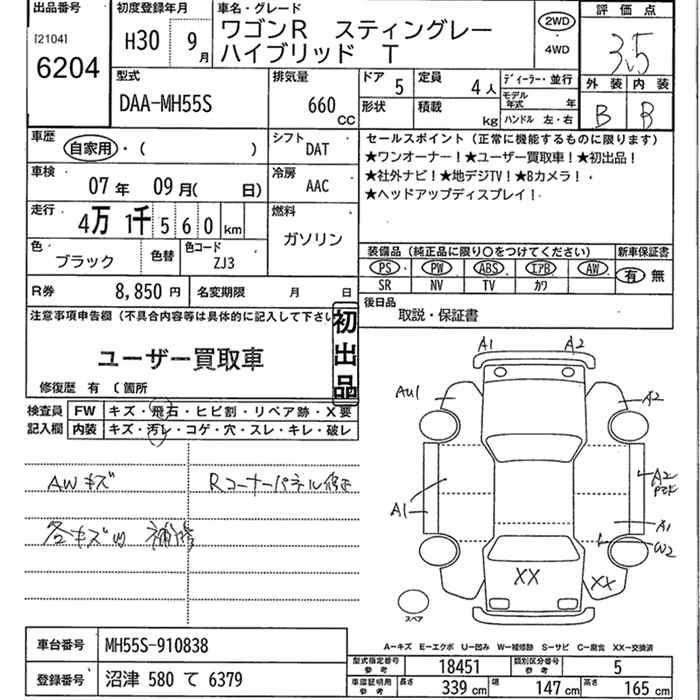 出品番号
[2104]
6204
初度登録年月
H30 9月
車名・グレード
ワゴンR スティングレー
ハイブリッド T
2WD
・
4WD
評価点
3.5
外装 内装
B B
型式
DAA-MH55S
排気量
660
CC
ドア 5
形状
定員 4人
積載 kg
ディーラー・並行
モデル年式 年
ハンドル 左・右
車歴
自家用・( )
シフト
DAT
車検
07年 09月( 日)
冷房
AAC
走行
4万1千560km
燃料
ガソリン
色
ブラック
色替
色コード
ZJ3
R券 8,850円
名変期限 月 日
セールスポイント(正常に機能するものに限ります)
★ワンオーナー!★ユーザー買取車!★初出品!
★社外ナビ!★地デジTV!★Bカメラ!
★ヘッドアップディスプレイ!
装備品(純正品に限り○をつけてください)
新車保証書
PS PW ABS エアB AW
有・無
SR NV TV カワ
後日品
取説・保証書
注意事項申告欄(不具合内容等は具体的に記入して下さい
初出品
ユーザー買取車
修復歴 有 〔箇所
検査員
記入欄
FW キズ・飛石・ヒビ割・リペア跡・X要
内装 キズ・汚レ・コゲ・穴・スレ・キレ・破レ
AWキズ
Rコーナーパネル修正
各キズW 補修
A1 A2
AU1
A2
A1
A2
A1
W2
XX
XX
スペア
A-キズ E-エクボ U-凹み W-補修跡 S-サビ C-腐食 XX-交換済
車台番号 MH55S-910838
登録番号 沼津 580 て 6379
型式指定番号
参考
18451
類別区分番号
参考
5
車庫証明用
参考
長さ 339cm
幅 147cm
高さ 165cm